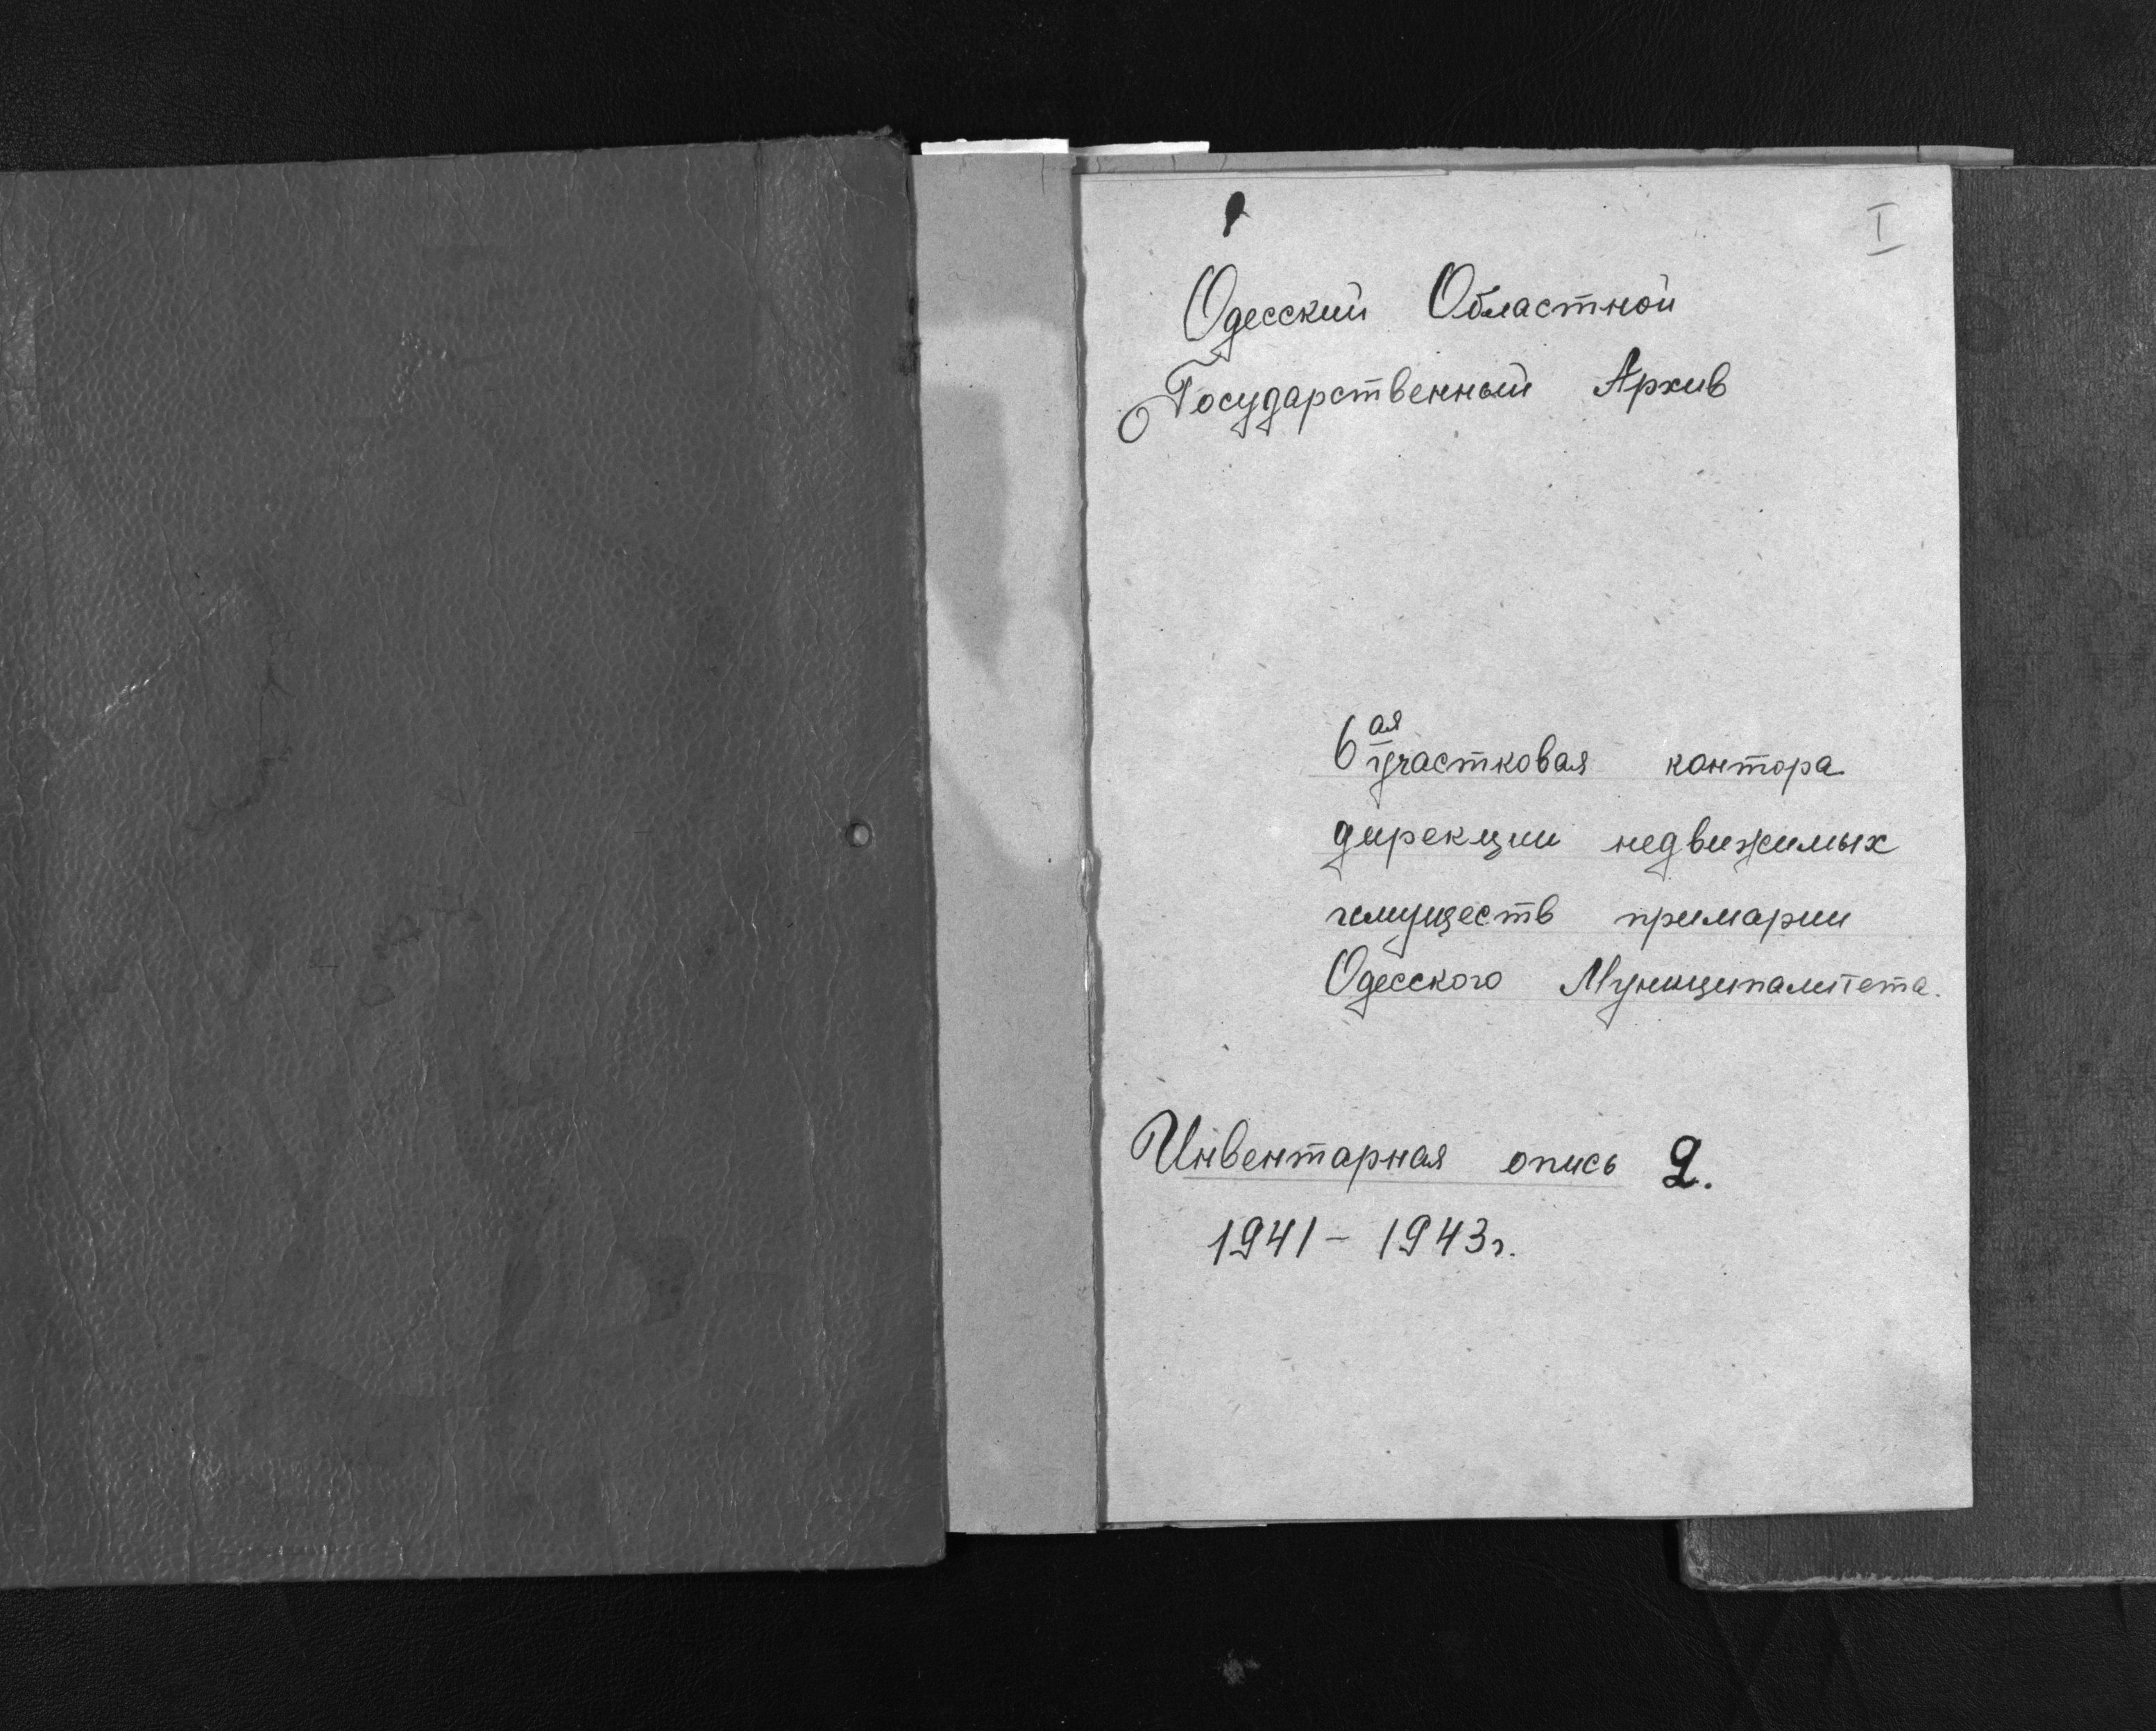 I
Одесский Областной
Государственный Архив
6ая участковая контора
дирекции недвижимых
имуществ примарии
Одесского Муниципалитета.
Инвентарная опись 2.
1941 – 1943 г.